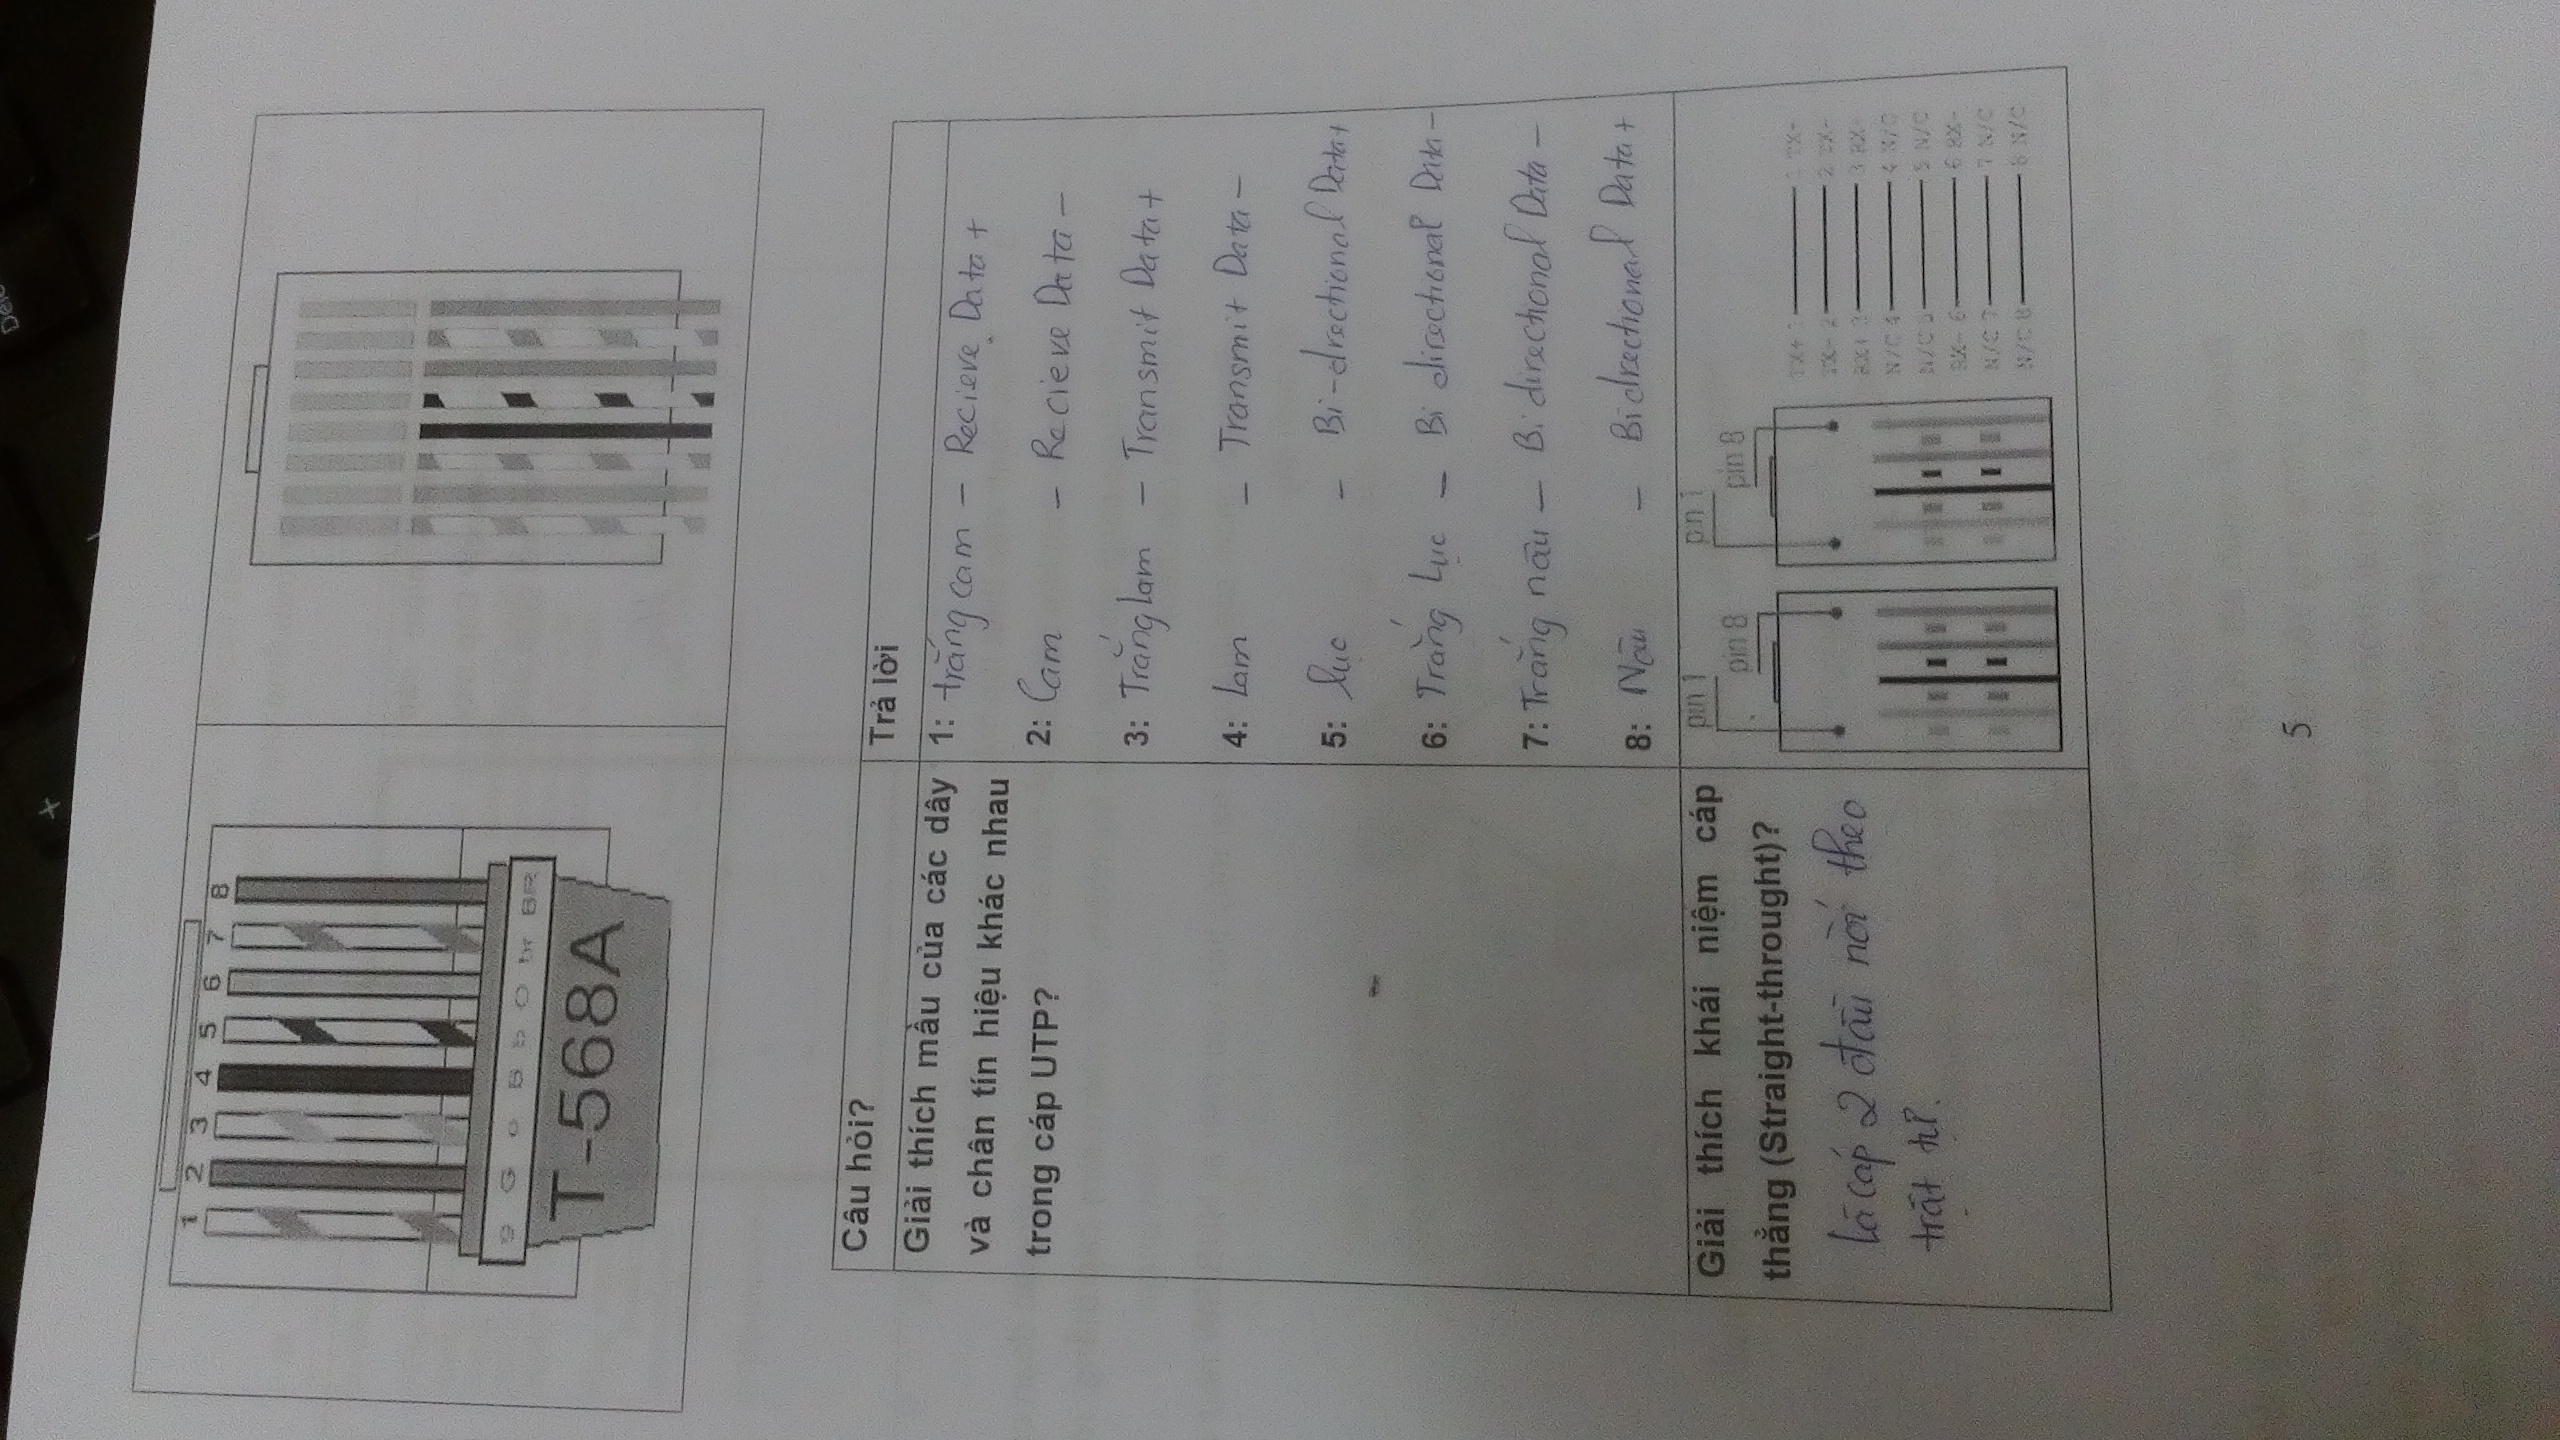 Dele
+
1 2 3 4 5 6 7 8
g G o B b O br BR
T-568A
Câu hỏi?
Trả lời
Giải thích mầu của các dây
và chân tín hiệu khác nhau
trong cáp UTP?
1: trắng cam – Recieve Data +
2: Cam – Recieve Data –
3: Trắng lam – Transmit Data +
4: Lam – Transmit Data –
5: lục – Bi-drectional Data+
6: Trắng Lục – Bi directional Data –
7: Trắng nâu – Bi directional Data –
8: Nâu – Bidrectional Data +
Giải thích khái niệm cáp
thẳng (Straight-throught)?
Là cáp 2 đầu nối theo
trật tự.
pin 1
pin 8
pin 1
pin 8
TX+ 1 1 TX+
TX- 2 2 TX-
RX+ 3 3 RX
N/C 4 4 N/C
N/C 5 5 N/C
RX- 6 6 RX-
N/C 7 7 N/C
N/C 8 8 N/C
5